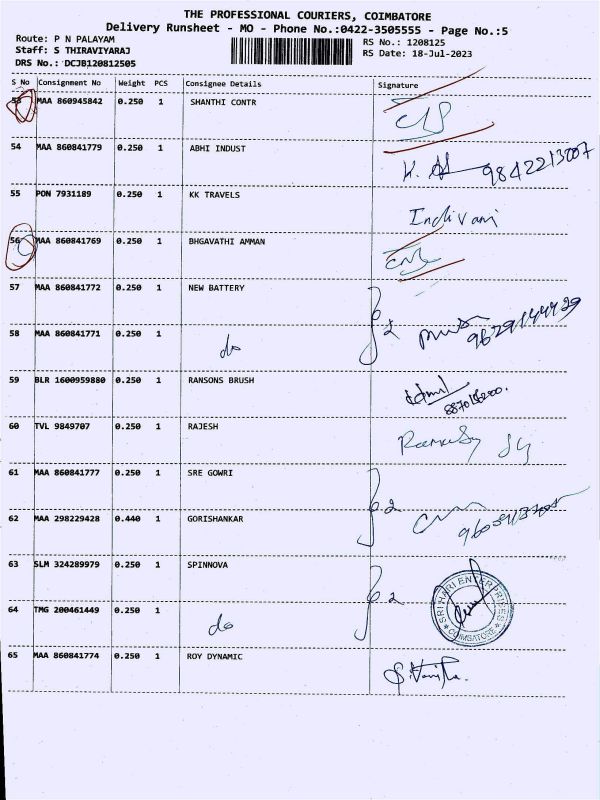 THE PROFESSIONAL COURIERS, COIMBATORE
Delivery Runsheet - MO - Phone No.:0422-3505555 - Page No.:5
Route: P N PALAYAM
Staff: S THIRAVIYARAJ
DRS No.: DCJB120812505
RS No.: 1208125
RS Date: 18-Jul-2023
S No Consignment No Weight PCS Consignee Details Signature
53 MAA 860945842 0.250 1 SHANTHI CONTR
54 MAA 860841779 0.250 1 ABHI INDUST
9842213007
55 PON 7931189 0.250 1 KK TRAVELS
Indivani
56 MAA 860841769 0.250 1 BHGAVATHI AMMAN
57 MAA 860841772 0.250 1 NEW BATTERY
2
9629144929
58 MAA 860841771 0.250 1 do
59 BLR 1600959880 0.250 1 RANSONS BRUSH
60 TVL 9849707 0.250 1 RAJESH
61 MAA 860841777 0.250 1 SRE GOWRI
2
62 MAA 298229428 0.440 1 GORISHANKAR
63 SLM 324289979 0.250 1 SPINNOVA
2
SRI HARI ENTERPRISES
COIMBATORE
64 TMG 200461449 0.250 1 do
65 MAA 860841774 0.250 1 ROY DYNAMIC